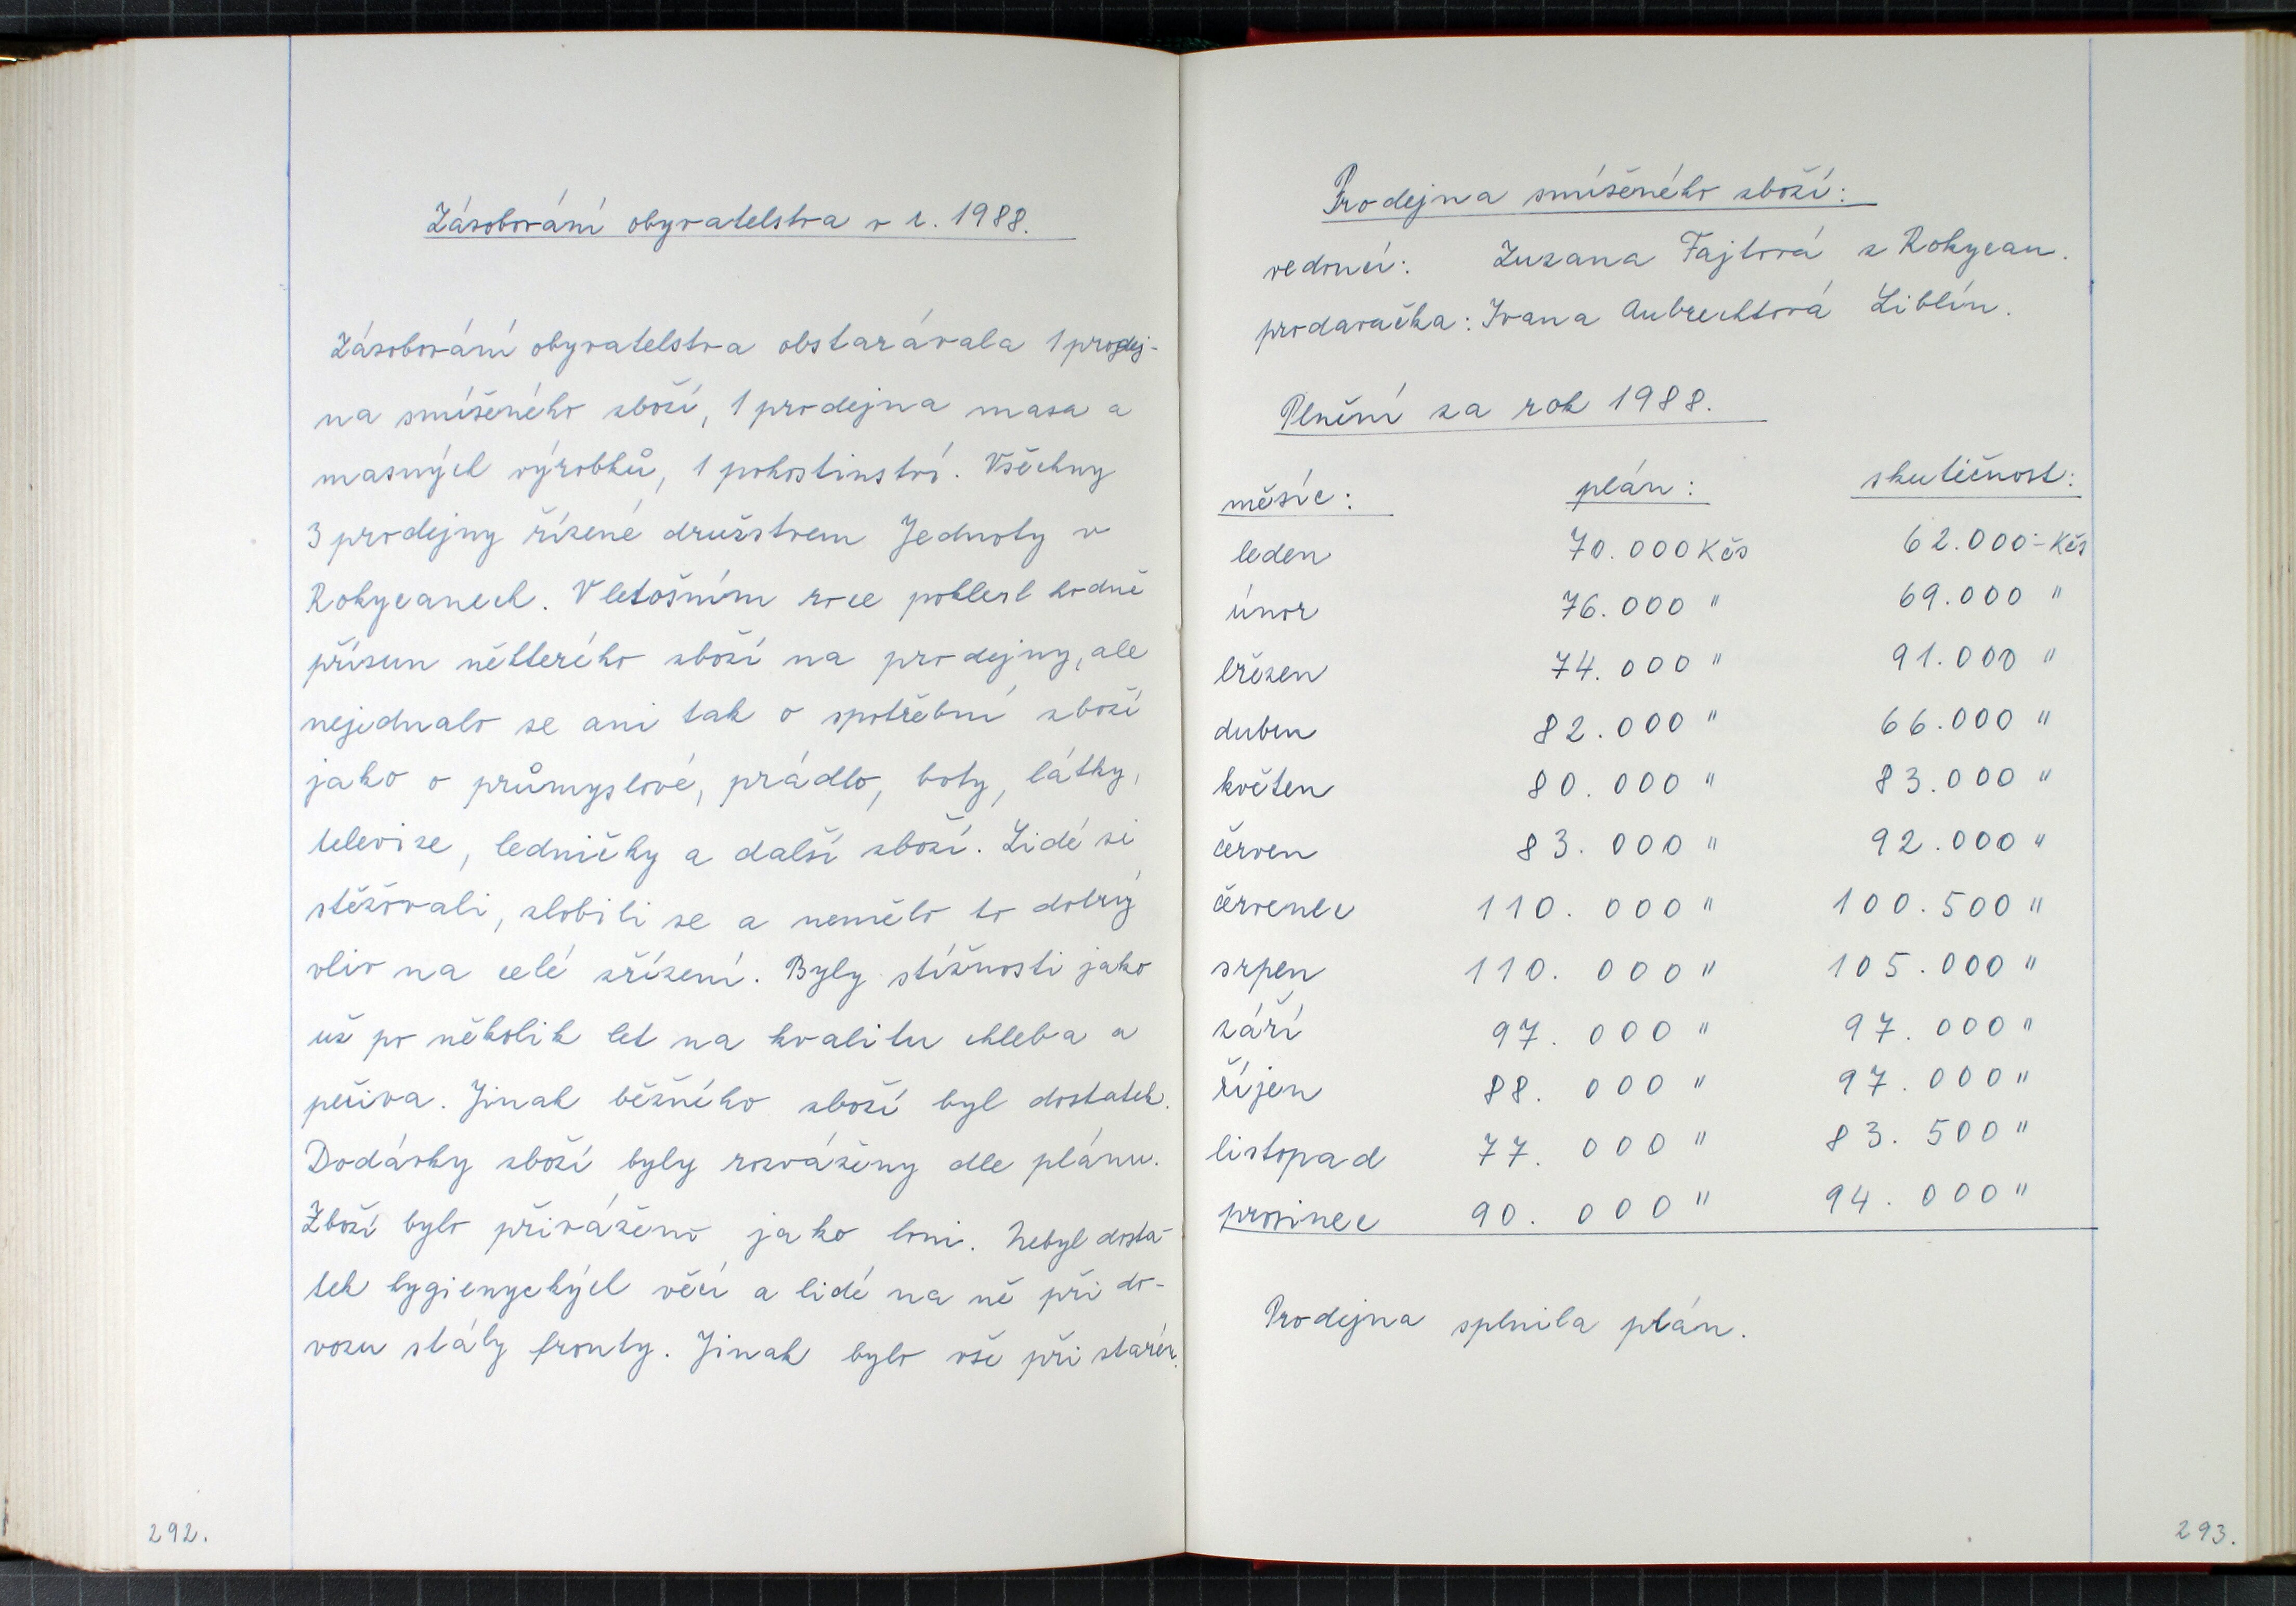 Zásobování obyvatelstva v r. 1988.
Zásobování obyvatelstva obstarávala 1 prodej-
na smíšeného zboží, 1 prodejna masa a
masných výrobků, 1 pohostinství. Všechny
3 prodejny řízené družstvem Jednoty v
Rokycanech. V letošním roce poklesl hodně
přísun některého zboží na prodejny, ale
nejednalo se ani tak o spotřební zboží
jako o průmyslové, prádlo, boty, látky,
televize, ledničky a další zboží. Lidé si
stěžovali, zlobili se a nemělo to dobrý
vliv na celé zřízení. Byly stížnosti jako
už po několik let na kvalitu chleba a
pečiva. Jinak běžného zboží byl dostatek.
Dodávky zboží byly rozváženy dle plánu.
Zboží bylo přiváženo jako loni. Nebyl dosta-
tek hygienyckých věcí a lidé na ně při do-
vozu stály fronty. Jinak bylo vše při starém.
292.
Prodejna smíšeného zboží:
vedoucí: Zuzana Fajtová z Rokycan.
prodavačka: Ivana Aubrechtová Liblín.
Plnění za rok 1988.
měsíc: plán: skutečnost:
leden 70.000 Kčs 62.000.- Kčs
únor 76.000 " 69.000 "
březen 74.000 " 91.000 "
duben 82.000 " 66.000 "
květen 80.000 " 83.000 "
červen 83.000 " 92.000 "
červenec 110.000 " 100.500 "
srpen 110.000 " 105.000 "
září 97.000 " 97.000 "
říjen 88.000 " 97.000 "
listopad 77.000 " 83.500 "
prosinec 90.000 " 94.000 "
Prodejna splnila plán.
293.